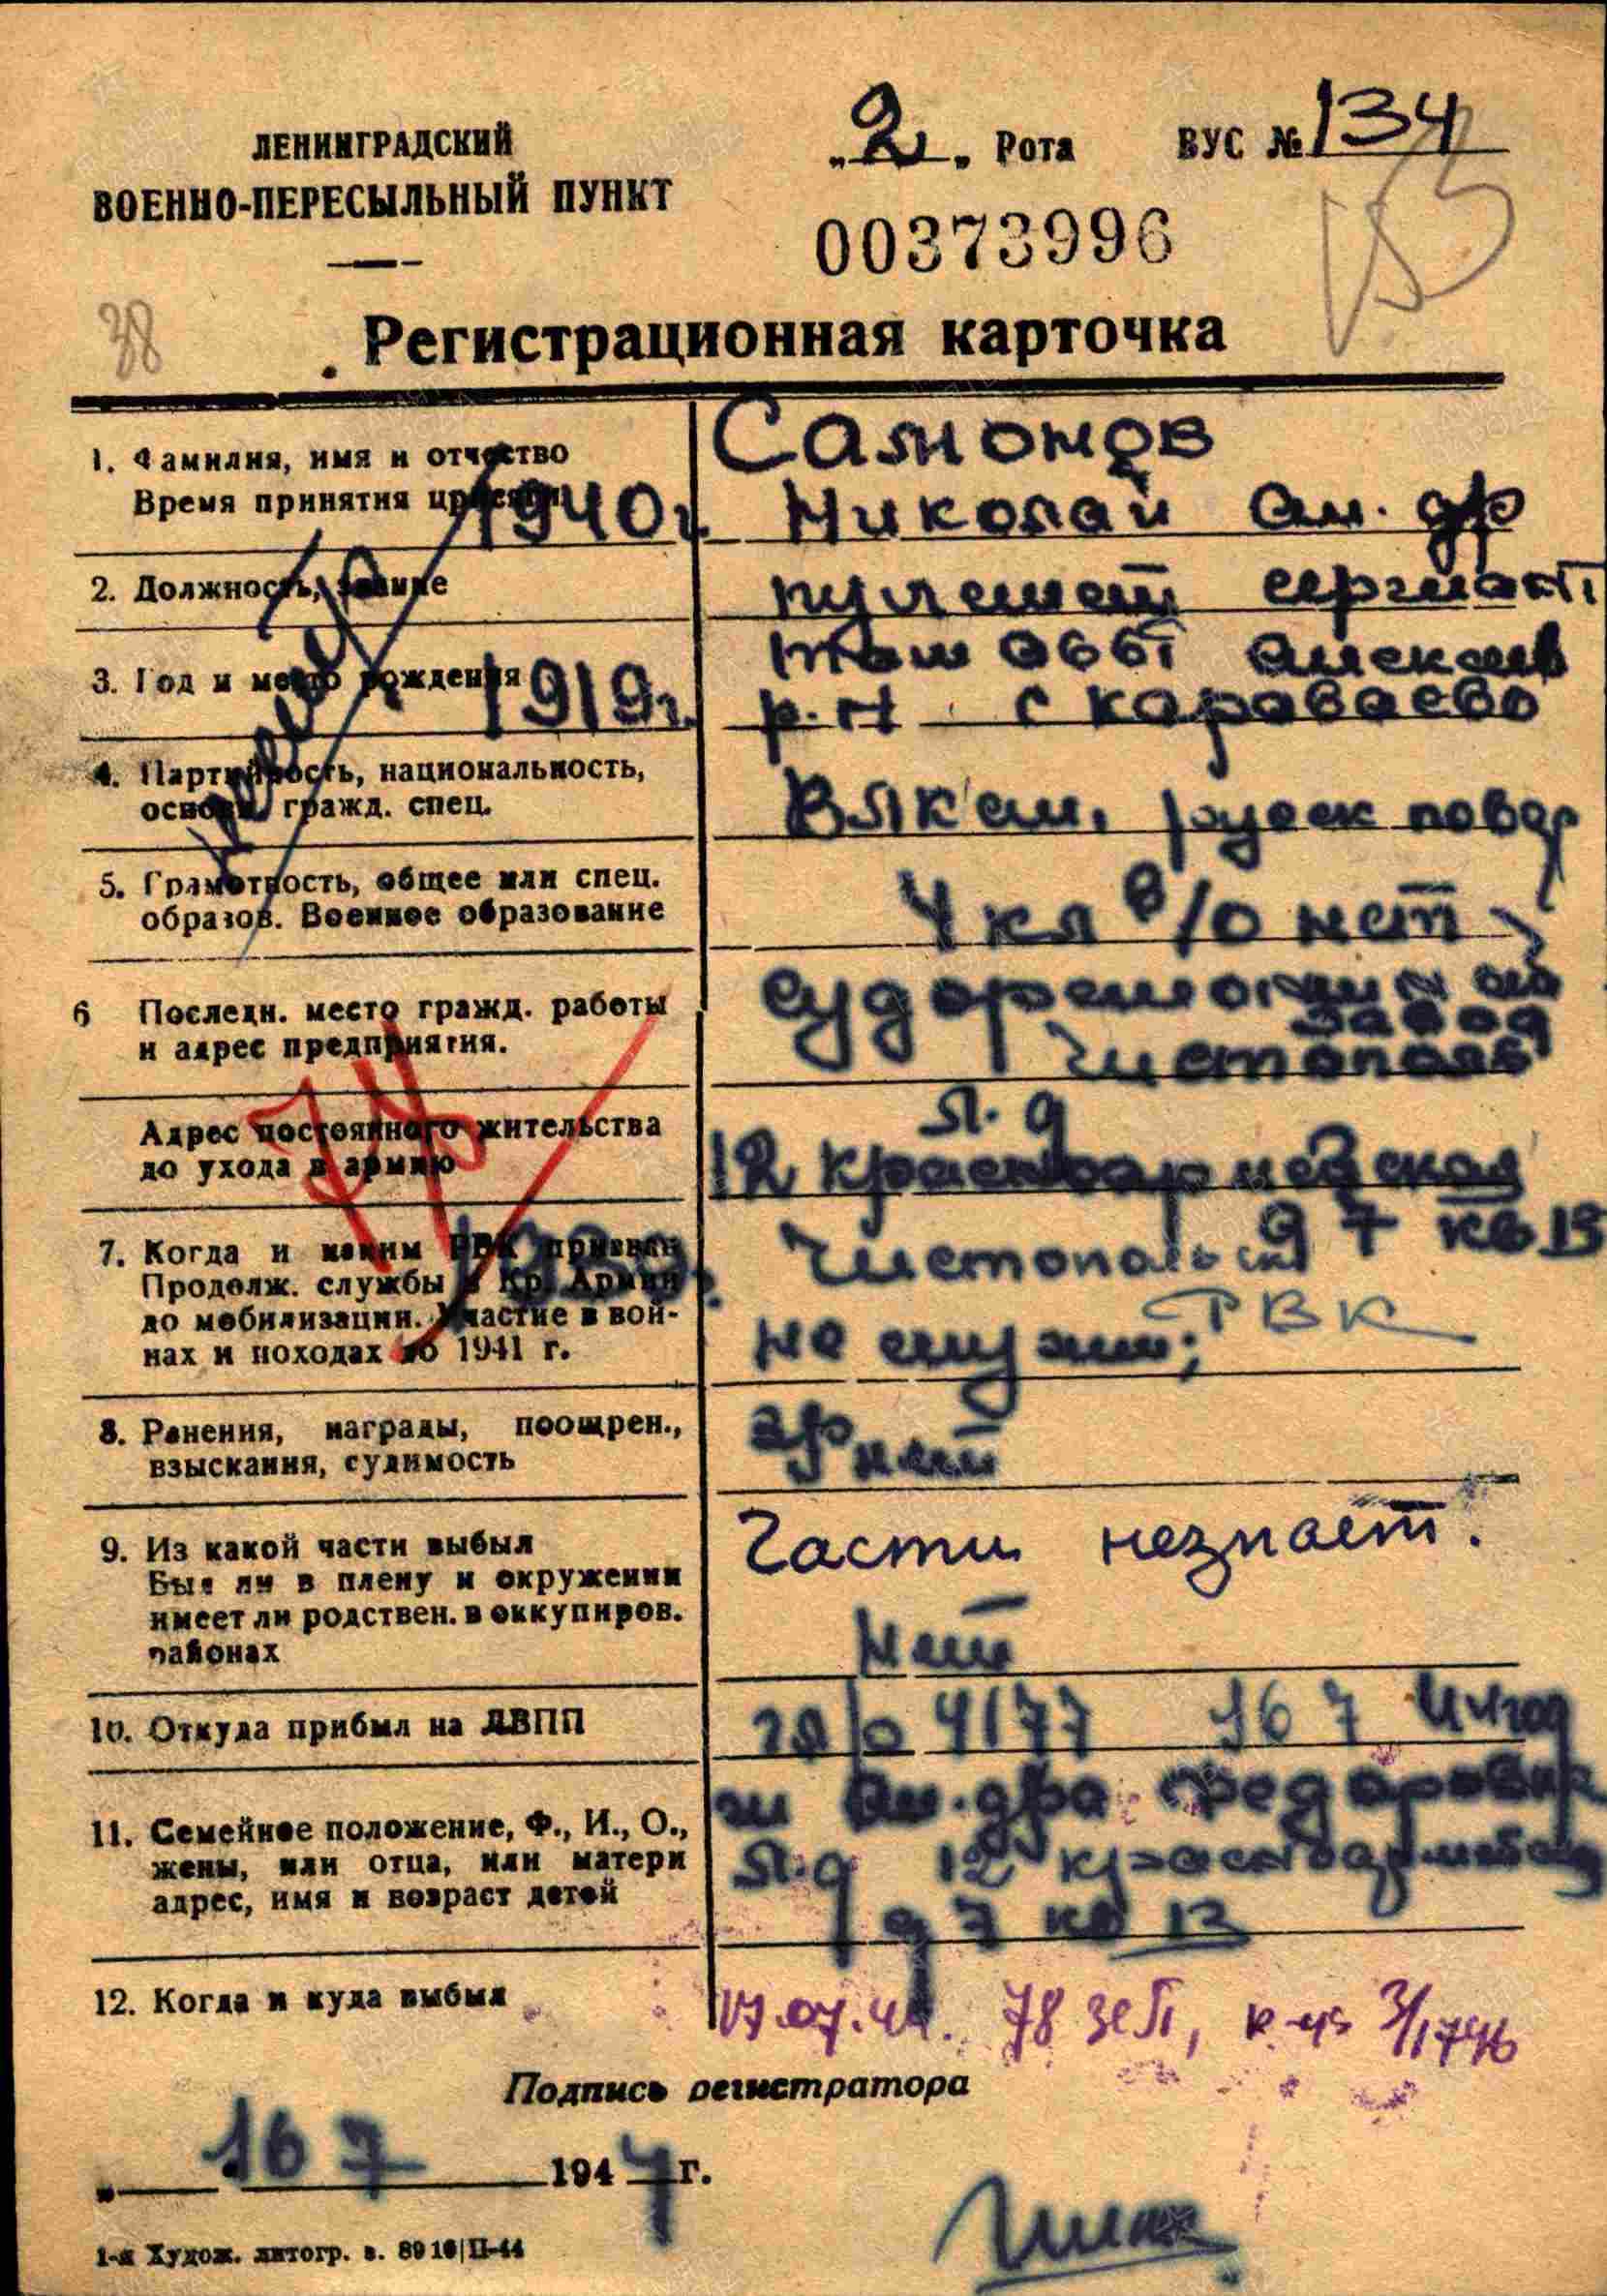 ЛЕНИНГРАДСКИЙ
ВОЕННО-ПЕРЕСЫЛЬНЫЙ ПУНКТ
„2„ Рота ВУС № 134
00373996
153
38
Регистрационная карточка
1. Фамилия, имя и отчество
Время принятия присяги 1940 г.
Николай Ал.др
2. Должность, звание
пулемет сержант
3. Год и место рождения 1919 г.
обл Алексеев
р.н с караваево
4. Партийность, национальность,
основн. гражд. спец.
русск повар
5. Грамотность, общее или спец.
образов. Военное образование
4 кл в/о нет
6 Последн. место гражд. работы
и адрес предприятия.
судоремонтный
завод
Чистополь
Адрес постоянного жительства
до ухода в армию
Л.д
12 красноармейская
д 7 кв 13
7. Когда и каким РВК призван 1939 г.
Продолж. службы в Кр. Армии
до мобилизации. Участие в вой-
нах и походах до 1941 г.
Чистопольск
РВК
не служил;
8. Ранения, награды, поощрен.,
взыскания, судимость
нет
9. Из какой части выбыл
Был ли в плену и окружении
имеет ли родствен. в оккупиров.
районах
Части незнает.
Нет
10. Откуда прибыл на ЛВПП
4177 16 7 44 год
11. Семейное положение, Ф., И., О.,
жены, или отца, или матери
адрес, имя и возраст детей
ж Ал.дра Федоровна
Л.д 12 красноармейск
д 7 кв 13
12. Когда и куда выбыл
17.07.44. 78 зсп, к-да 3/1746
Подпись регистратора
„ 16 7 1944 г.
1-я Худож. литогр. з. 8910|II-44